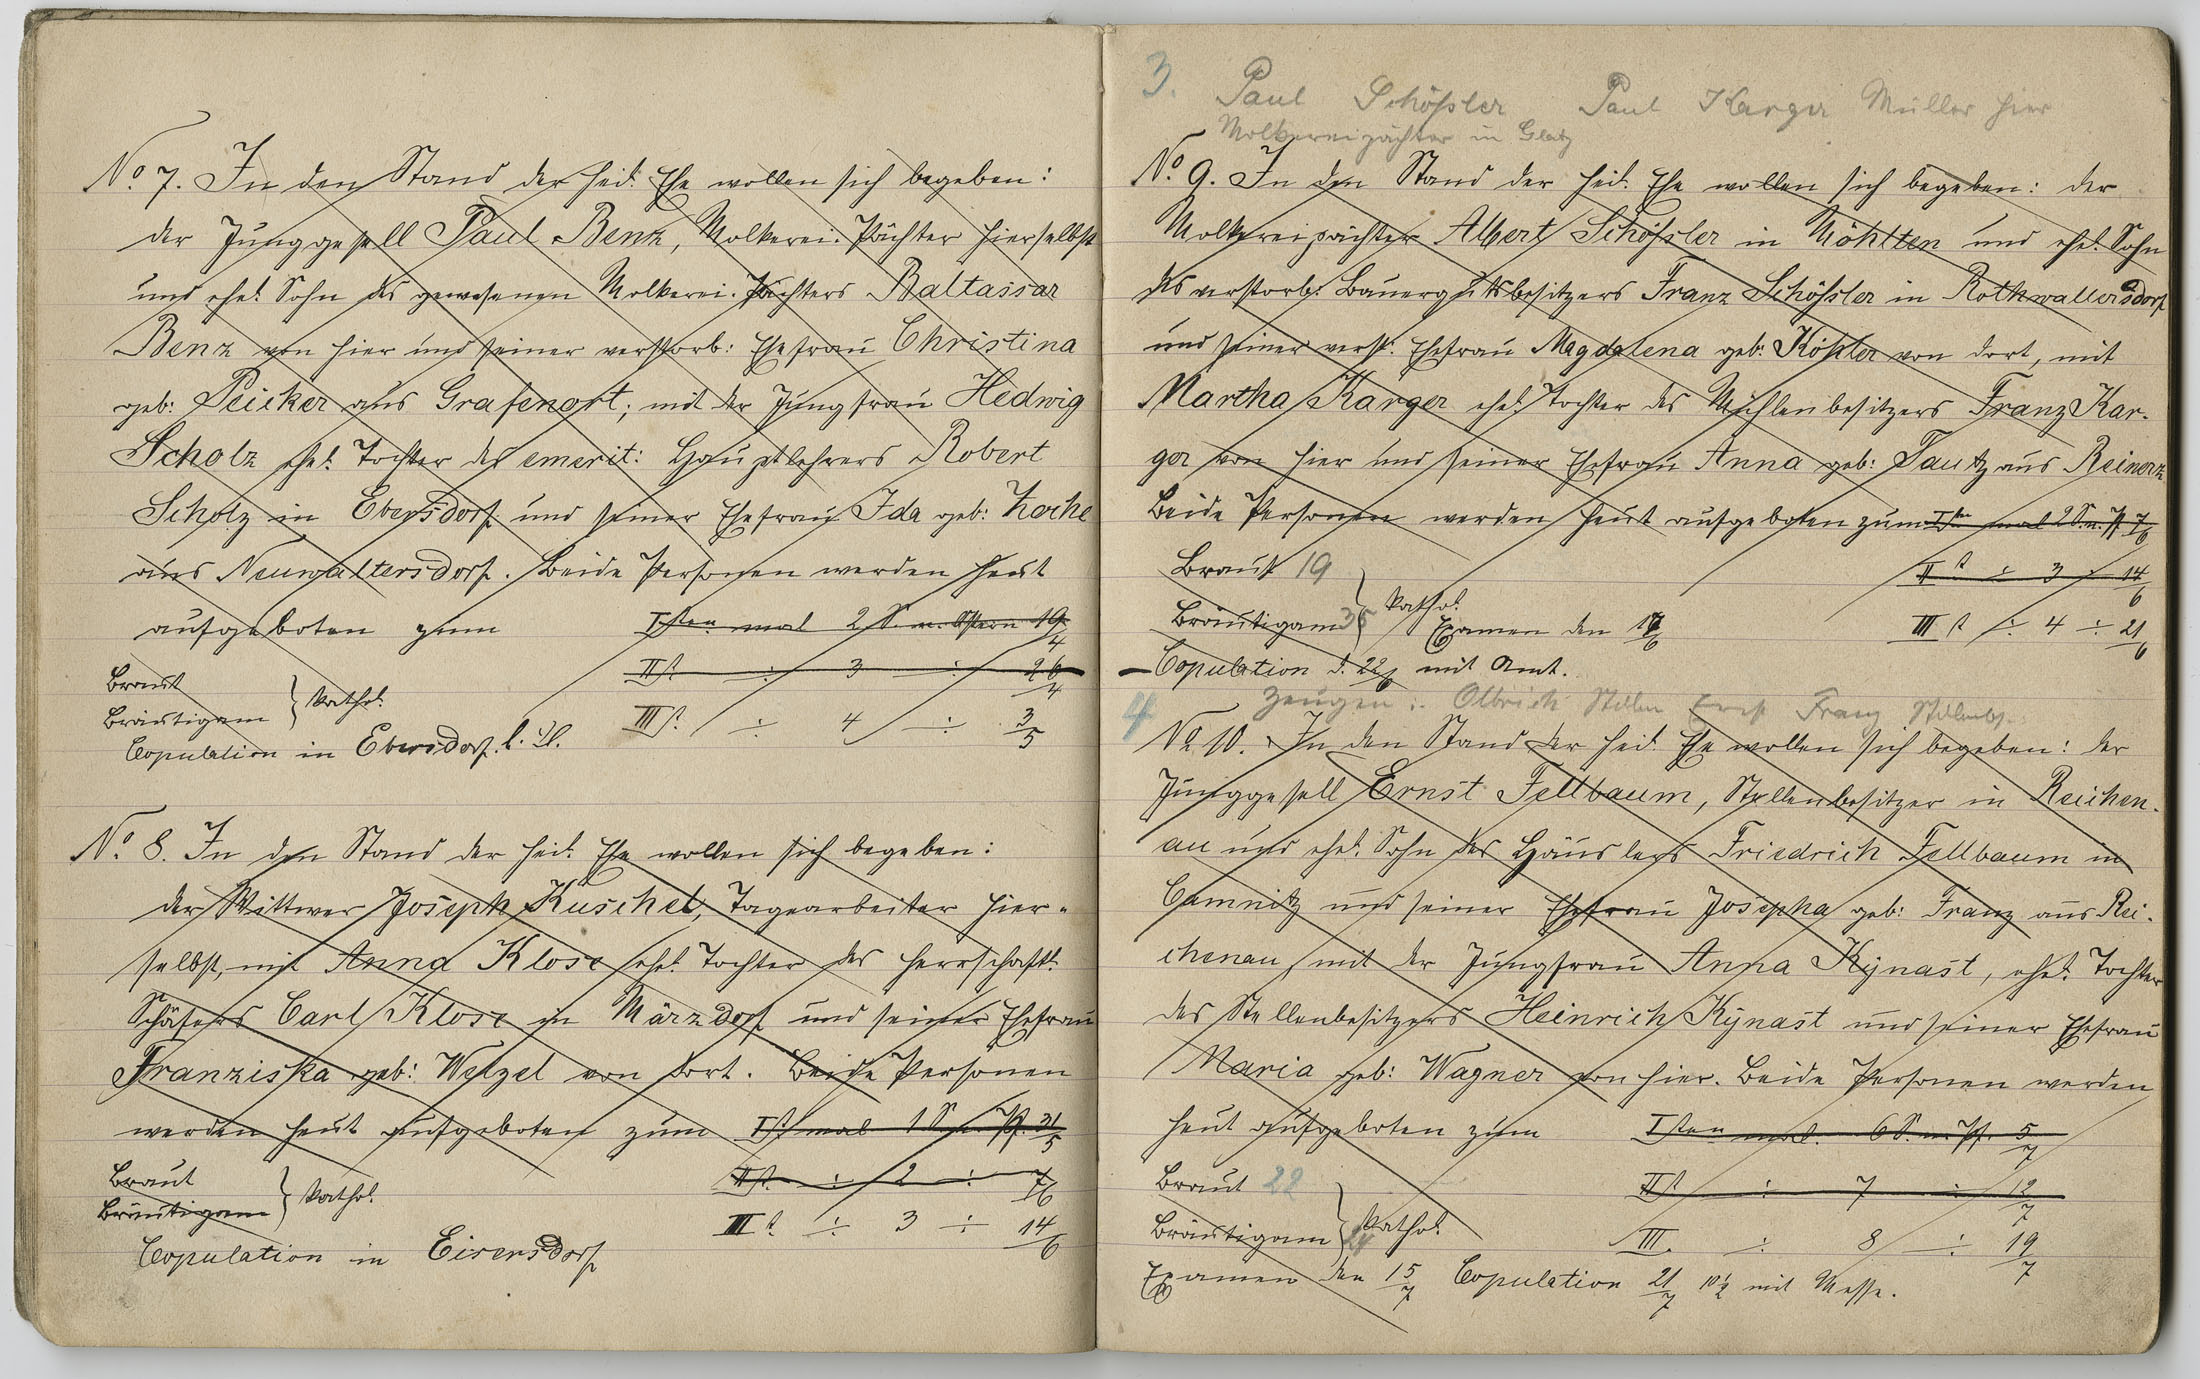 No. 7. In den Stand der heil. Ehe wollen sich begeben:
der Junggesell Paul Benz, Molkerei-Pächter hierselbst
und ehel. Sohn des gewesenen Molkerei-Pächters Baltassar
Benz von hier und seiner verstorb: Ehefrau Christina
geb: Peicker aus Grafenort; mit der Jungfrau Hedwig
Scholz ehel. Tochter des emerit: Hauptlehrers Robert
Scholz in Ebersdorf und seiner Ehefrau Ida geb: Zoche
aus Neuwaltersdorf. Beide Personen werden heut
aufgeboten zum Isten mal 2 S. n. Ostern 19/4
IIt. ÷ 3 ÷ 26/4
Braut
Bräutigam } kathol.
IIIt. ÷ 4 ÷ 3/5
Copulation in Ebersdorf
No. 8. In den Stand der heil. Ehe wollen sich begeben:
der Wittwer Joseph Kuschel, Tagearbeiter hier-
selbst, mit Anna Klose ehel. Tochter des herrschaftl.
Schäfers Carl Klose in Märzdorf und seiner Ehefrau
Franziska geb: Welzel von dort. Beide Personen
werden heut aufgeboten zum It. mal 1 S. n. Pf. 31/5
Braut
Bräutigam } kathol.
IIt. ÷ 2 ÷ 7/6
IIIt. ÷ 3 ÷ 14/6
Copulation in Eisersdorf
3. Paul Schößler Paul Karger Müller hier
Molkereipächter in Glatz
No. 9. In den Stand der heil. Ehe wollen sich begeben: der
Molkereipächter Albert Schößler in Möhlten und ehel. Sohn
des verstorb: Bauergutsbesitzers Franz Schößler in Rothwaltersdorf
und seiner verst. Ehefrau Magdalena geb: Köhler von dort, mit
Martha Karger ehel. Tochter des Mühlenbesitzers Franz Kar-
ger von hier und seiner Ehefrau Anna geb: Tautz aus Reinerz
Beide Personen werden heut aufgeboten zum Iten mal 2 S. n. Pf. 7/6
Braut 19
IIt ÷ 3 ÷ 14/6
Bräutigam 35 } kathol.
Examen den 17/6
IIIt ÷ 4 ÷ 21/6
Copulation d. 22/6 mit Amt.
Zeugen: Olbrich Stellen Franz Stellenbs.
4
No. 10. In den Stand der heil. Ehe wollen sich begeben: der
Junggesell Ernst Fellbaum, Stellenbesitzer in Reichen-
au und ehel. Sohn des Häuslers Friedrich Fellbaum in
Camnitz und seiner Ehefrau Josepha geb: Franz aus Rei-
chenau, mit der Jungfrau Anna Kynast, ehel. Tochter
des Stellenbesitzers Heinrich Kynast und seiner Ehefrau
Maria geb: Wagner von hier. Beide Personen werden
heut aufgeboten zum Isten mal. 6 S. n. Pf. 5/7
Braut 22
IIt ÷ 7 ÷ 12/7
Bräutigam 24 } kathol.
III. ÷ 8 ÷ 19/7
Examen den 15/7 Copulation 21/7 10½ mit Messe.